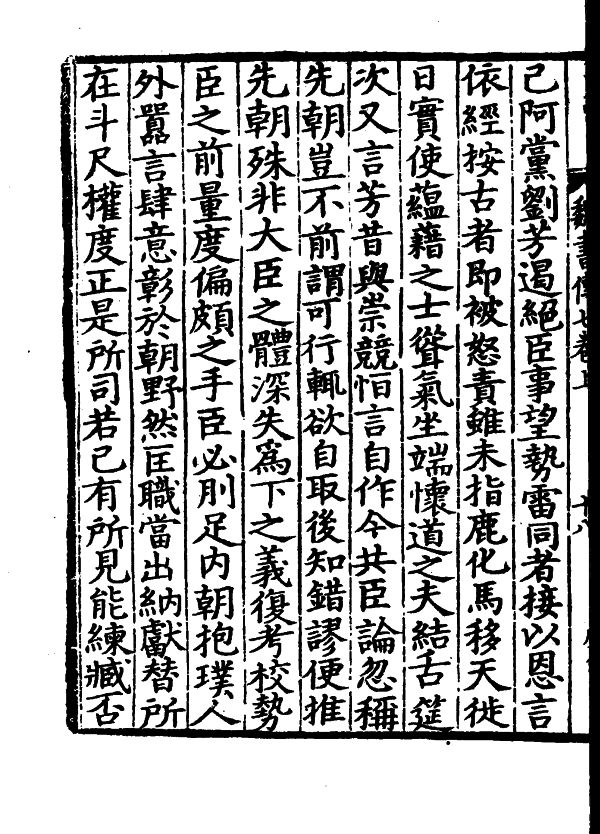 己阿黨劉芳遏絕臣事望勢雷同者接以恩言
依經按古者即被怒責雖未指鹿化馬移天徙
日實使蘊藉之士聳氣坐端懷道之夫結舌筵
次又言芳昔與崇競恒言自作今共臣論忽稱
先朝豈不前謂可行輒欲自取後知錯謬便推
先朝殊非大臣之體深失爲下之義復考校勢
臣之前量度偏頗之手臣必刖足內朝抱璞人
外囂言肆意彰於朝野然匡職當出納獻替所
在斗尺權度正是所司若己有所見能練臧否